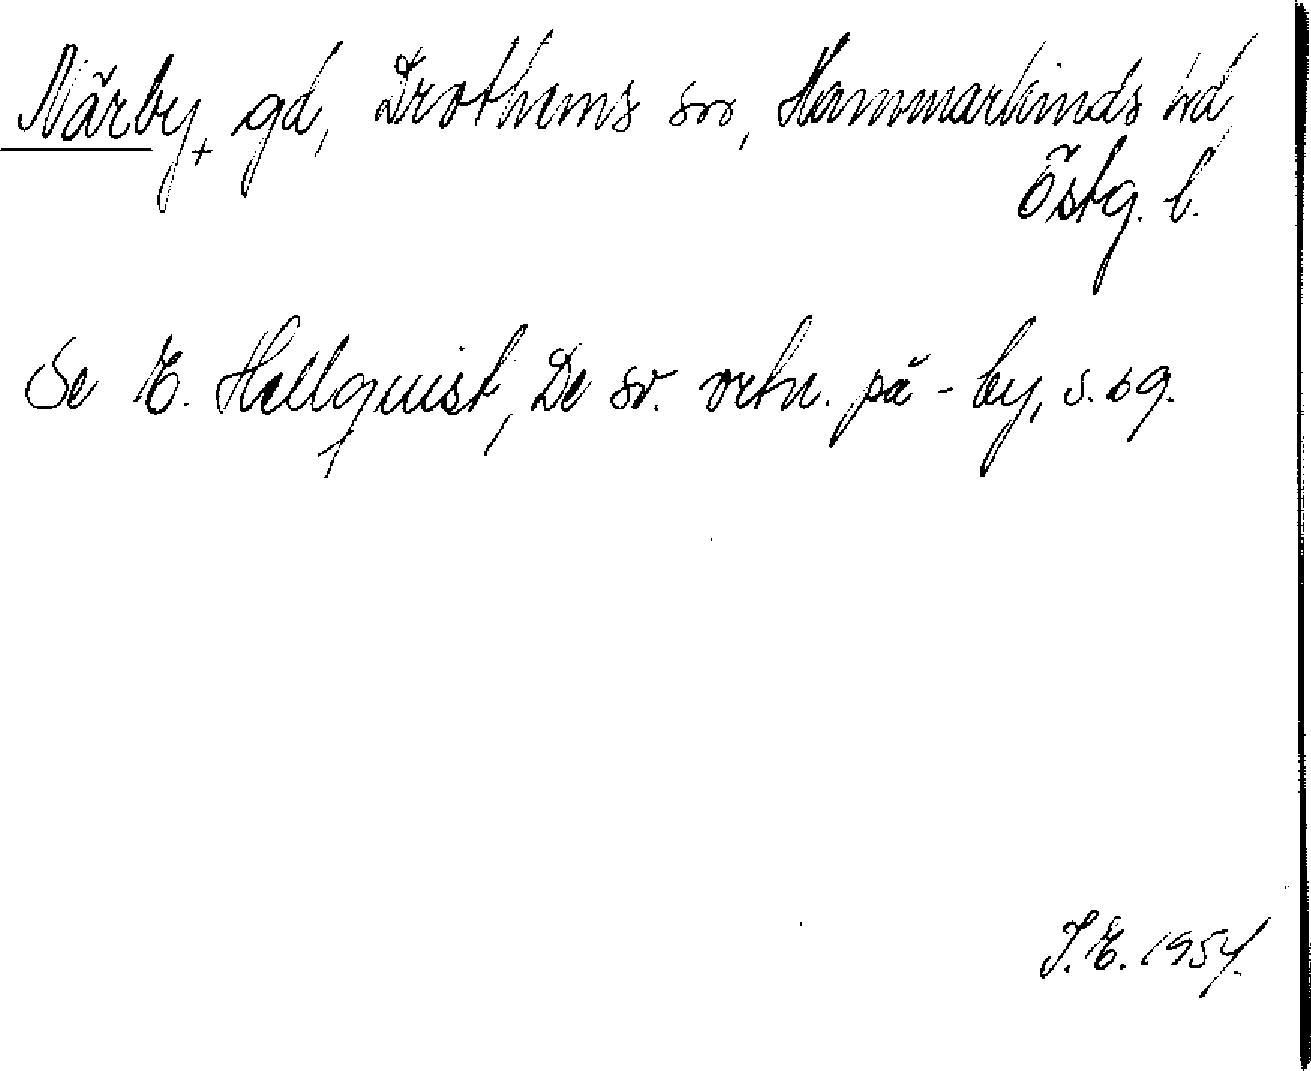 Närby, gd, Drothems sn, Hammarkinds hd,
Östg. l.
Se E. Hellquist, De sv. ortn. på -by, s. 69.
I. E. 1954.